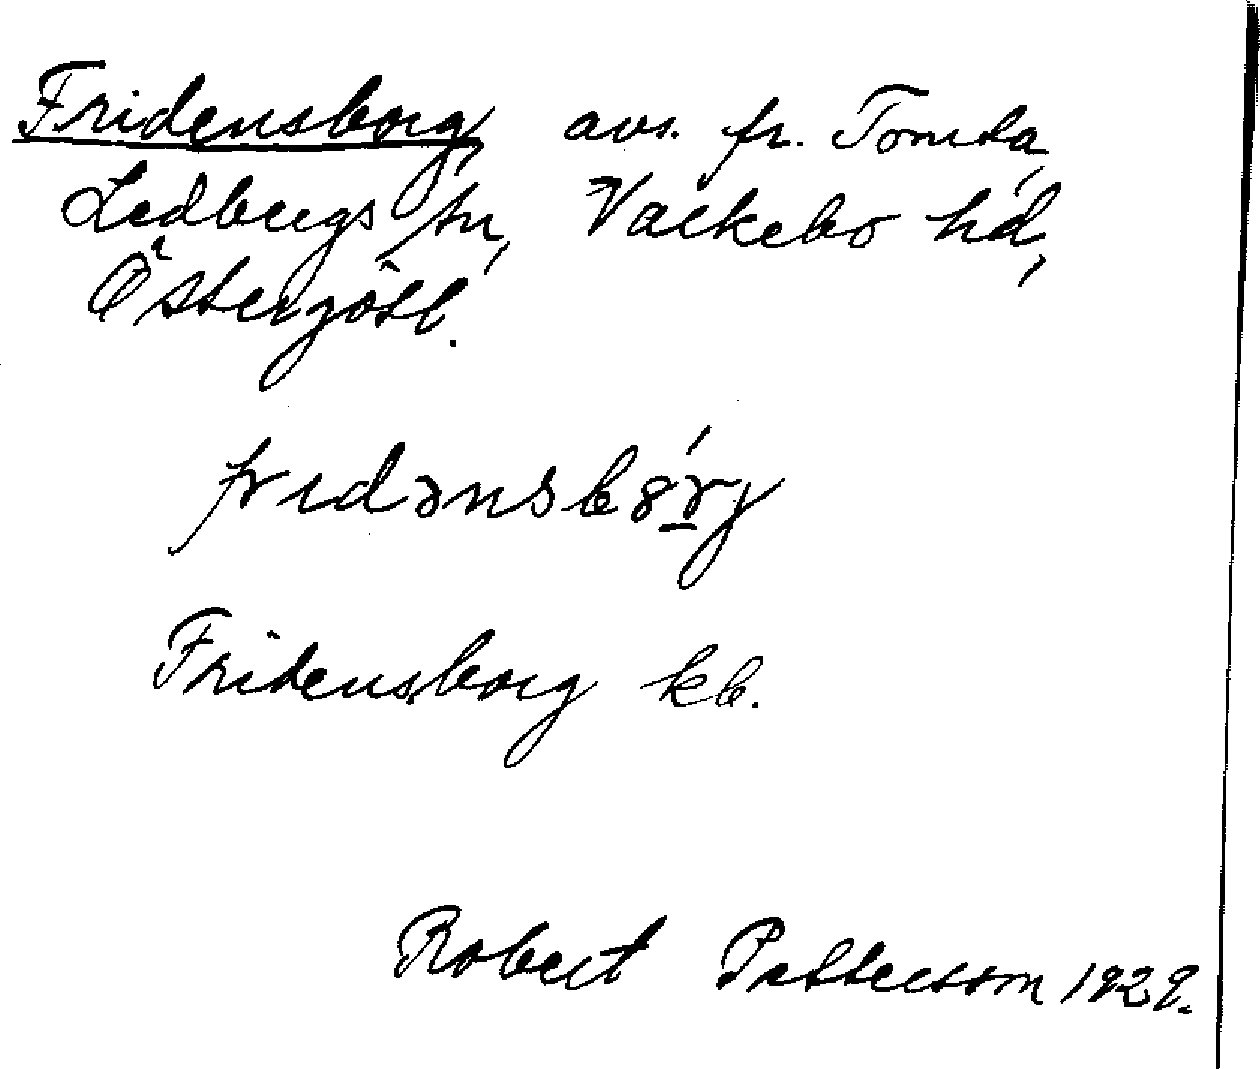 Fridensborg, avs. fr. Tomta,
Ledbergs sn, Valkebo hd,
Östergötl.
fridənsbȣ́rj
Fridensborg kb.
Robert Pettersson 1929.